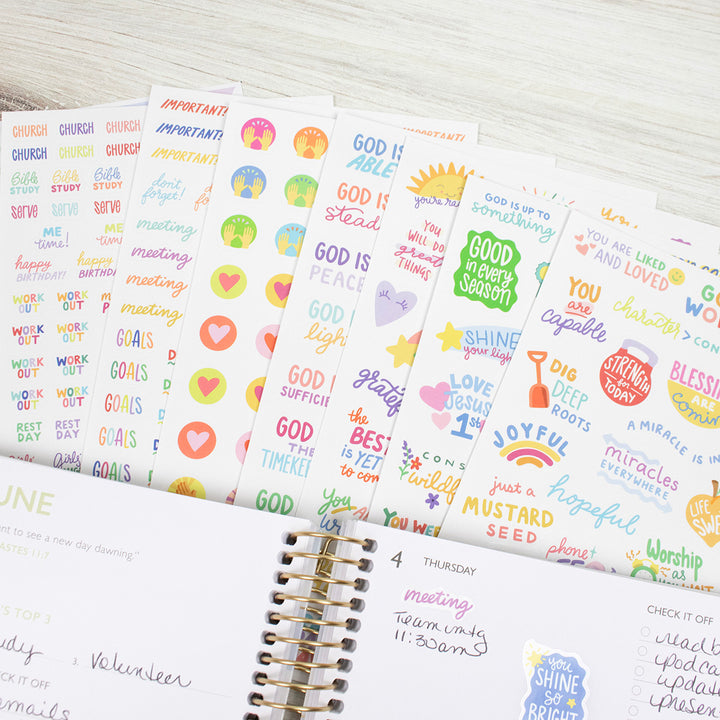 CHURCH CHURCH CHURCH
CHURCH CHURCH CHURCH
Bible STUDY Bible STUDY Bible STUDY
serve serve serve
ME time!
happy BIRTHDAY! happy BIRTHDAY!
WORK OUT WORK OUT WORK OUT
WORK OUT WORK OUT
WORK OUT WORK OUT
WORK OUT WORK OUT
REST DAY REST DAY
IMPORTANT!
IMPORTANT!
IMPORTANT!
don't forget!
meeting
meeting
meeting
meeting
GOALS
GOALS
GOALS
GOALS
GOALS
GOD IS ABLE
GOD IS
GOD IS PEACE
GOD IS
GOD IS
GOD THE TIMEKEEPER
GOD
IMPORTANT!
YOU WILL DO great THINGS
grateful
the BEST IS YET to come
You ARE
GOD IS UP TO something
GOOD in every SEASON
SHINE your light
LOVE Jesus 1st
YOU ARE LIKED AND LOVED
YOU are capable
character >
DIG DEEP ROOTS
STRENGTH for TODAY
BLESSINGS ARE coming
JOYFUL
A MIRACLE IS IN
miracles EVERYWHERE
just a MUSTARD SEED
hopeful
LIFE IS
Worship as You
UNE
nt to see a new day dawning."
ASTES 11:7
'S TOP 3
udy
3. Volunteer
CK IT OFF
emails
4 THURSDAY
meeting
Team mtg
11:30am
you SHINE SO BRIGHT
CHECK IT OFF